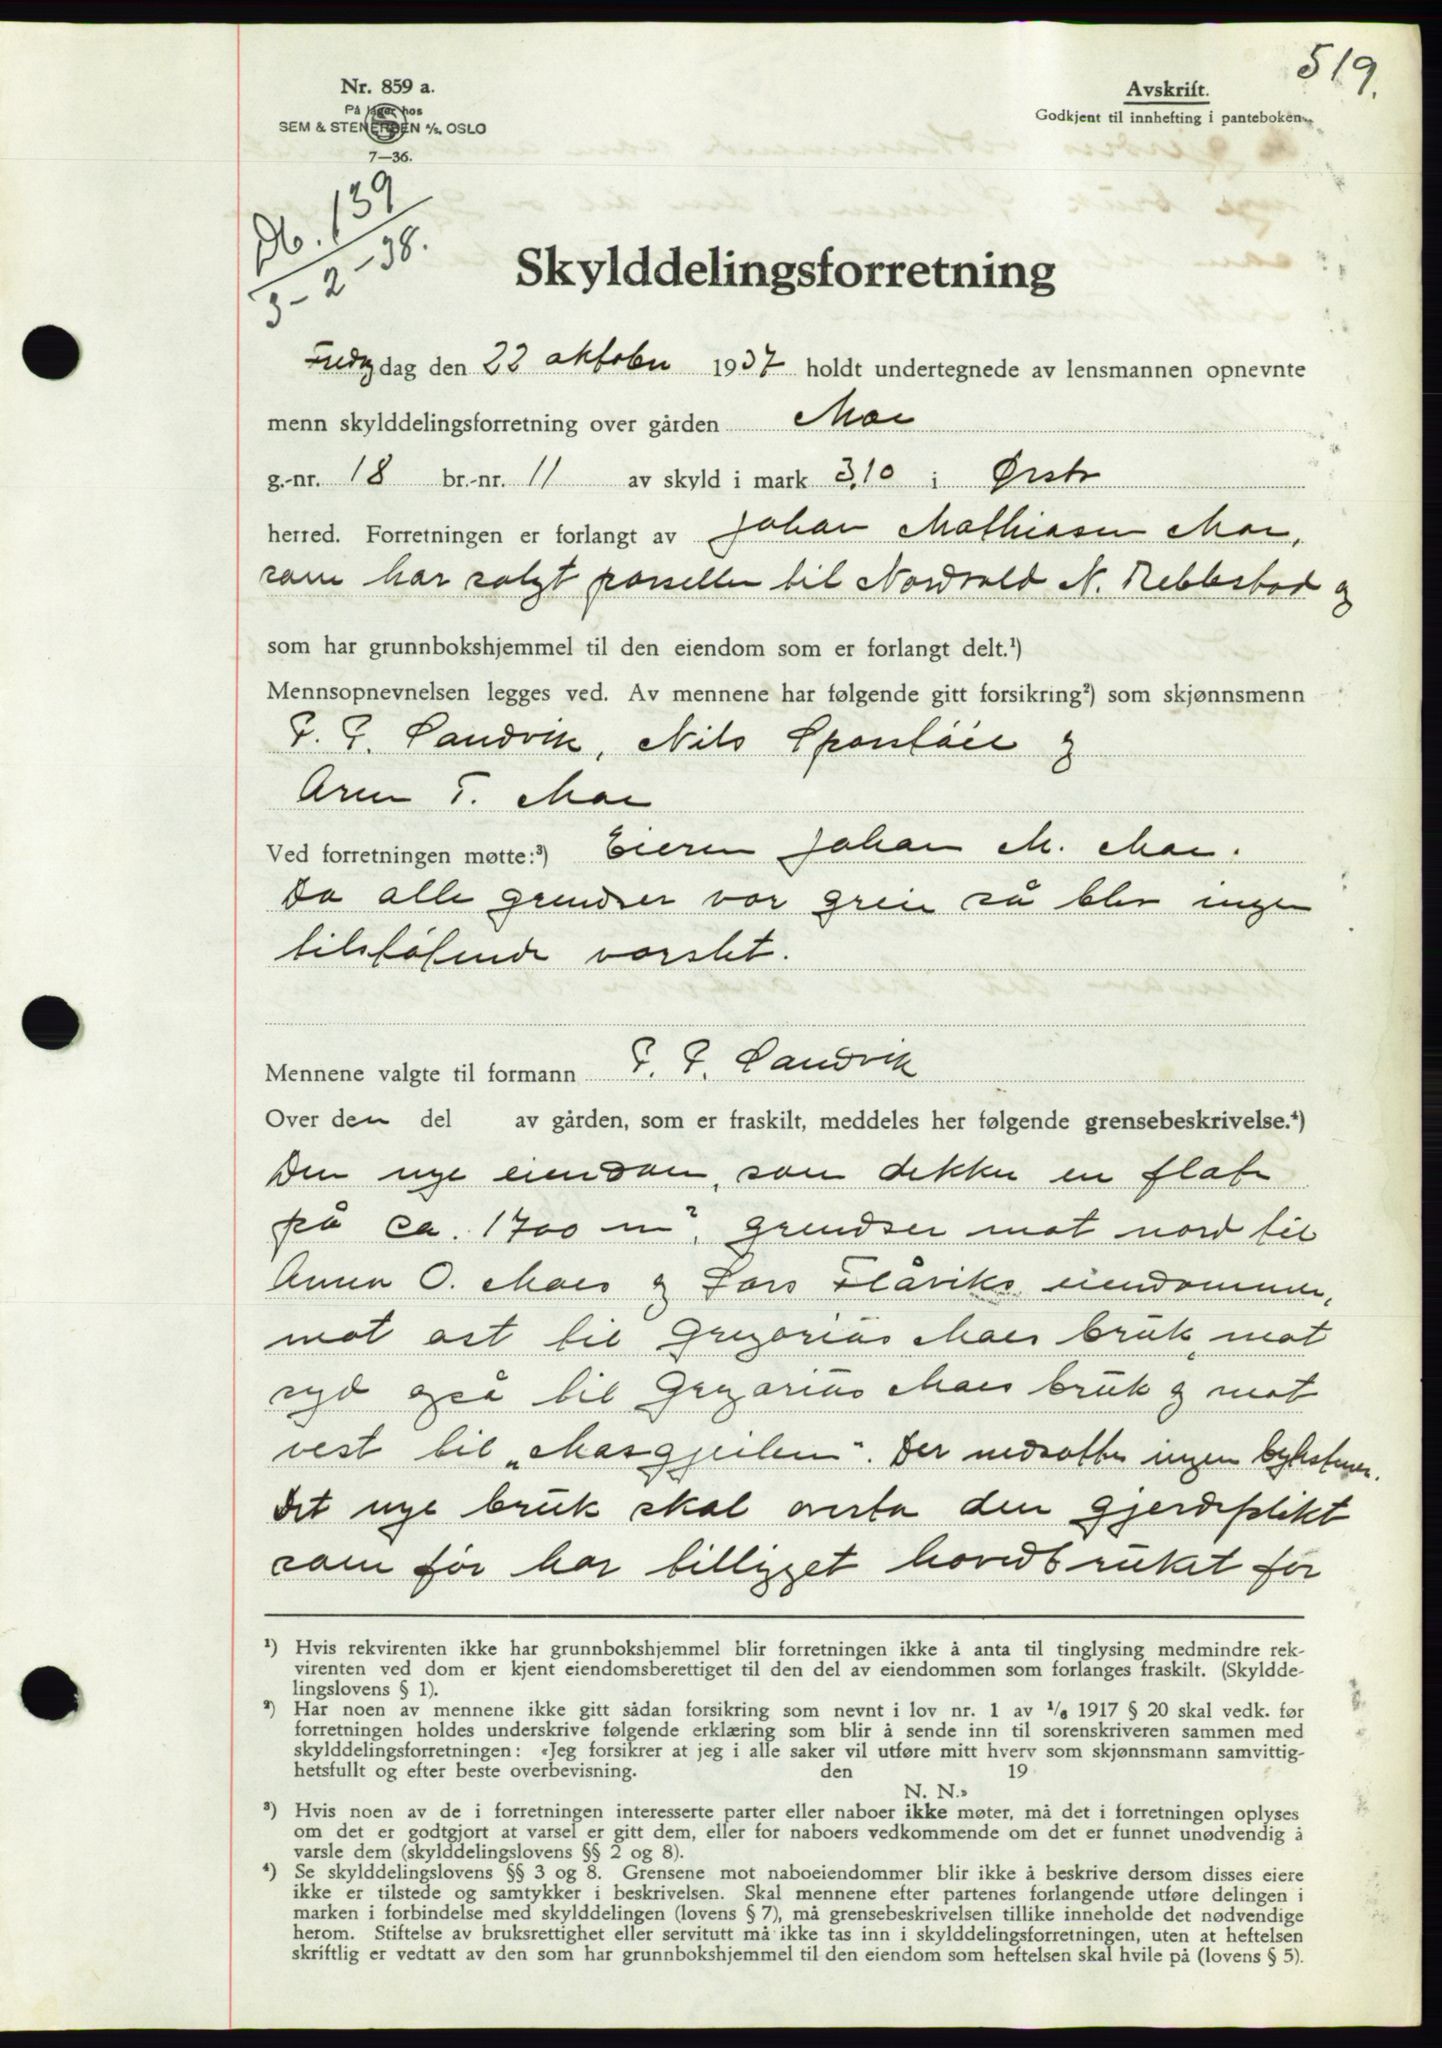 519.
Nr. 859 a.
På lager hos
SEM & STENERSEN A/S. OSLO
7—36.
Avskrift.
Godkjent til innhefting i panteboken.
Db. 139
3-2-38.
Skylddelingsforretning
Fredag dag den 22 oktober 1937 holdt undertegnede av lensmannen opnevnte
menn skylddelingsforretning over gården Moe
g.-nr. 18 br.-nr. 11 av skyld i mark 3,10 i Ørsta
herred. Forretningen er forlangt av Johan Mathiasen Moe,
som har solgt parsellen til Nordvald N. Rebbestad og
som har grunnbokshjemmel til den eiendom som er forlangt delt.¹)
Mennsopnevnelsen legges ved. Av mennene har følgende gitt forsikring²) som skjønnsmenn
P. P. Sandvik, Nils og
T. Moe
Ved forretningen møtte:³) Eieren Johan M. Moe.
Da alle grendser var greie så blev ingen
tilstøtende varslet.
Mennene valgte til formann P. P. Sandvik
Over den del av gården, som er fraskilt, meddeles her følgende grensebeskrivelse.⁴)
Den nye eiendom, som dekker en flate
på ca. 1700 m², grendser mot nord til
Anna O. Moes og Lars Flåviks eiendommer,
mot ost til Gregorius Moes bruk, mot
syd også til Gregorius Moes bruk og mot
vest til „Moegjeilen“. Der nedsattes ingen bytestener.
Det nye bruk skal overta den gjerdeplikt
som før har tilligget hovedbruket for
¹) Hvis rekvirenten ikke har grunnbokshjemmel blir forretningen ikke å anta til tinglysing medmindre rek-
virenten ved dom er kjent eiendomsberettiget til den del av eiendommen som forlanges fraskilt. (Skyldde-
lingslovens § 1).
²) Har noen av mennene ikke gitt sådan forsikring som nevnt i lov nr. 1 av ¹/₆ 1917 § 20 skal vedk. før
forretningen holdes underskrive følgende erklæring som blir å sende inn til sorenskriveren sammen med
skylddelingsforretningen: «Jeg forsikrer at jeg i alle saker vil utføre mitt hverv som skjønnsmann samvittig-
hetsfullt og efter beste overbevisning. den 19
N. N.»
³) Hvis noen av de i forretningen interesserte parter eller naboer ikke møter, må det i forretningen oplyses
om det er godtgjort at varsel er gitt dem, eller for naboers vedkommende om det er funnet unødvendig å
varsle dem (skylddelingslovens §§ 2 og 8).
⁴) Se skylddelingslovens §§ 3 og 8. Grensene mot naboeiendommer blir ikke å beskrive dersom disses eiere
ikke er tilstede og samtykker i beskrivelsen. Skal mennene efter partenes forlangende utføre delingen i
marken i forbindelse med skylddelingen (lovens § 7), må grensebeskrivelsen tillike inneholde det nødvendige
herom. Stiftelse av bruksrettighet eller servitutt må ikke tas inn i skylddelingsforretningen, uten at heftelsen
skriftlig er vedtatt av den som har grunnbokshjemmel til den eiendom som heftelsen skal hvile på (lovens § 5).